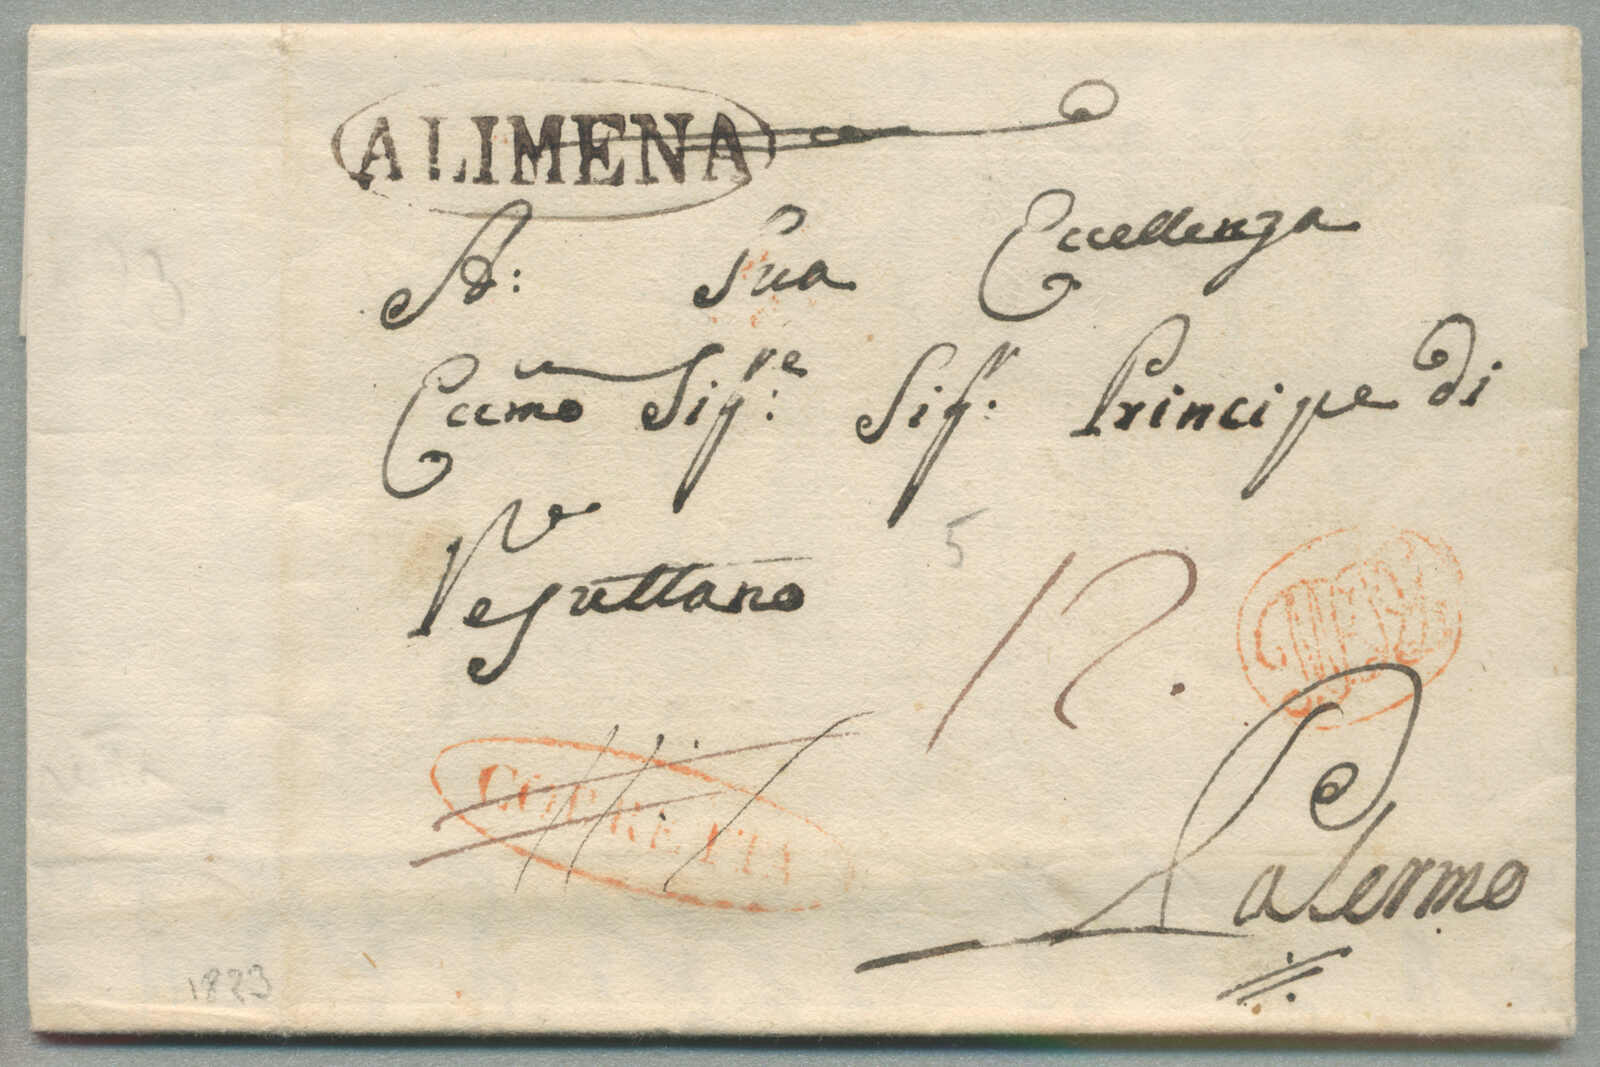 ALIMENA
A: Sua Eccellenza
Eccmo Sigre: Sigr: Principe di
Resuttano
5
12.
CORRETTA
Palermo
1823